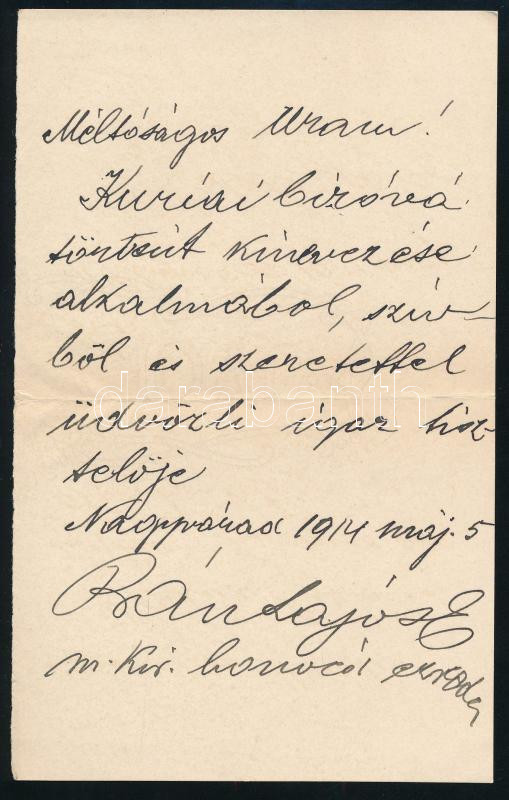 Méltóságos Uram!
Kuriai biróvá
történt kinevezése
alkalmából, szív-
ből és szeretettel
üdvözli igaz tisz-
telője
Nagyvárad 1914 máj. 5
Lajos
m. kir. honvéd ezredes
darabanth